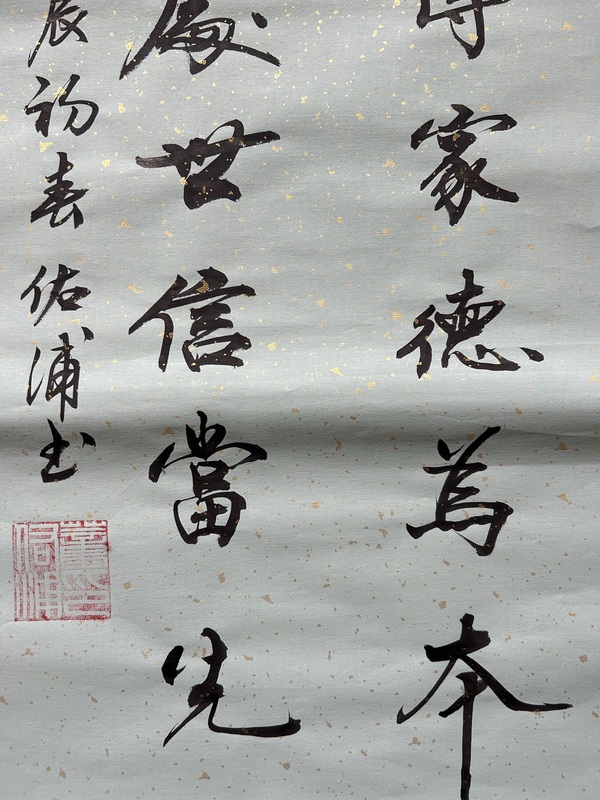 家德為本
處世信當先
辰初春佑浦书